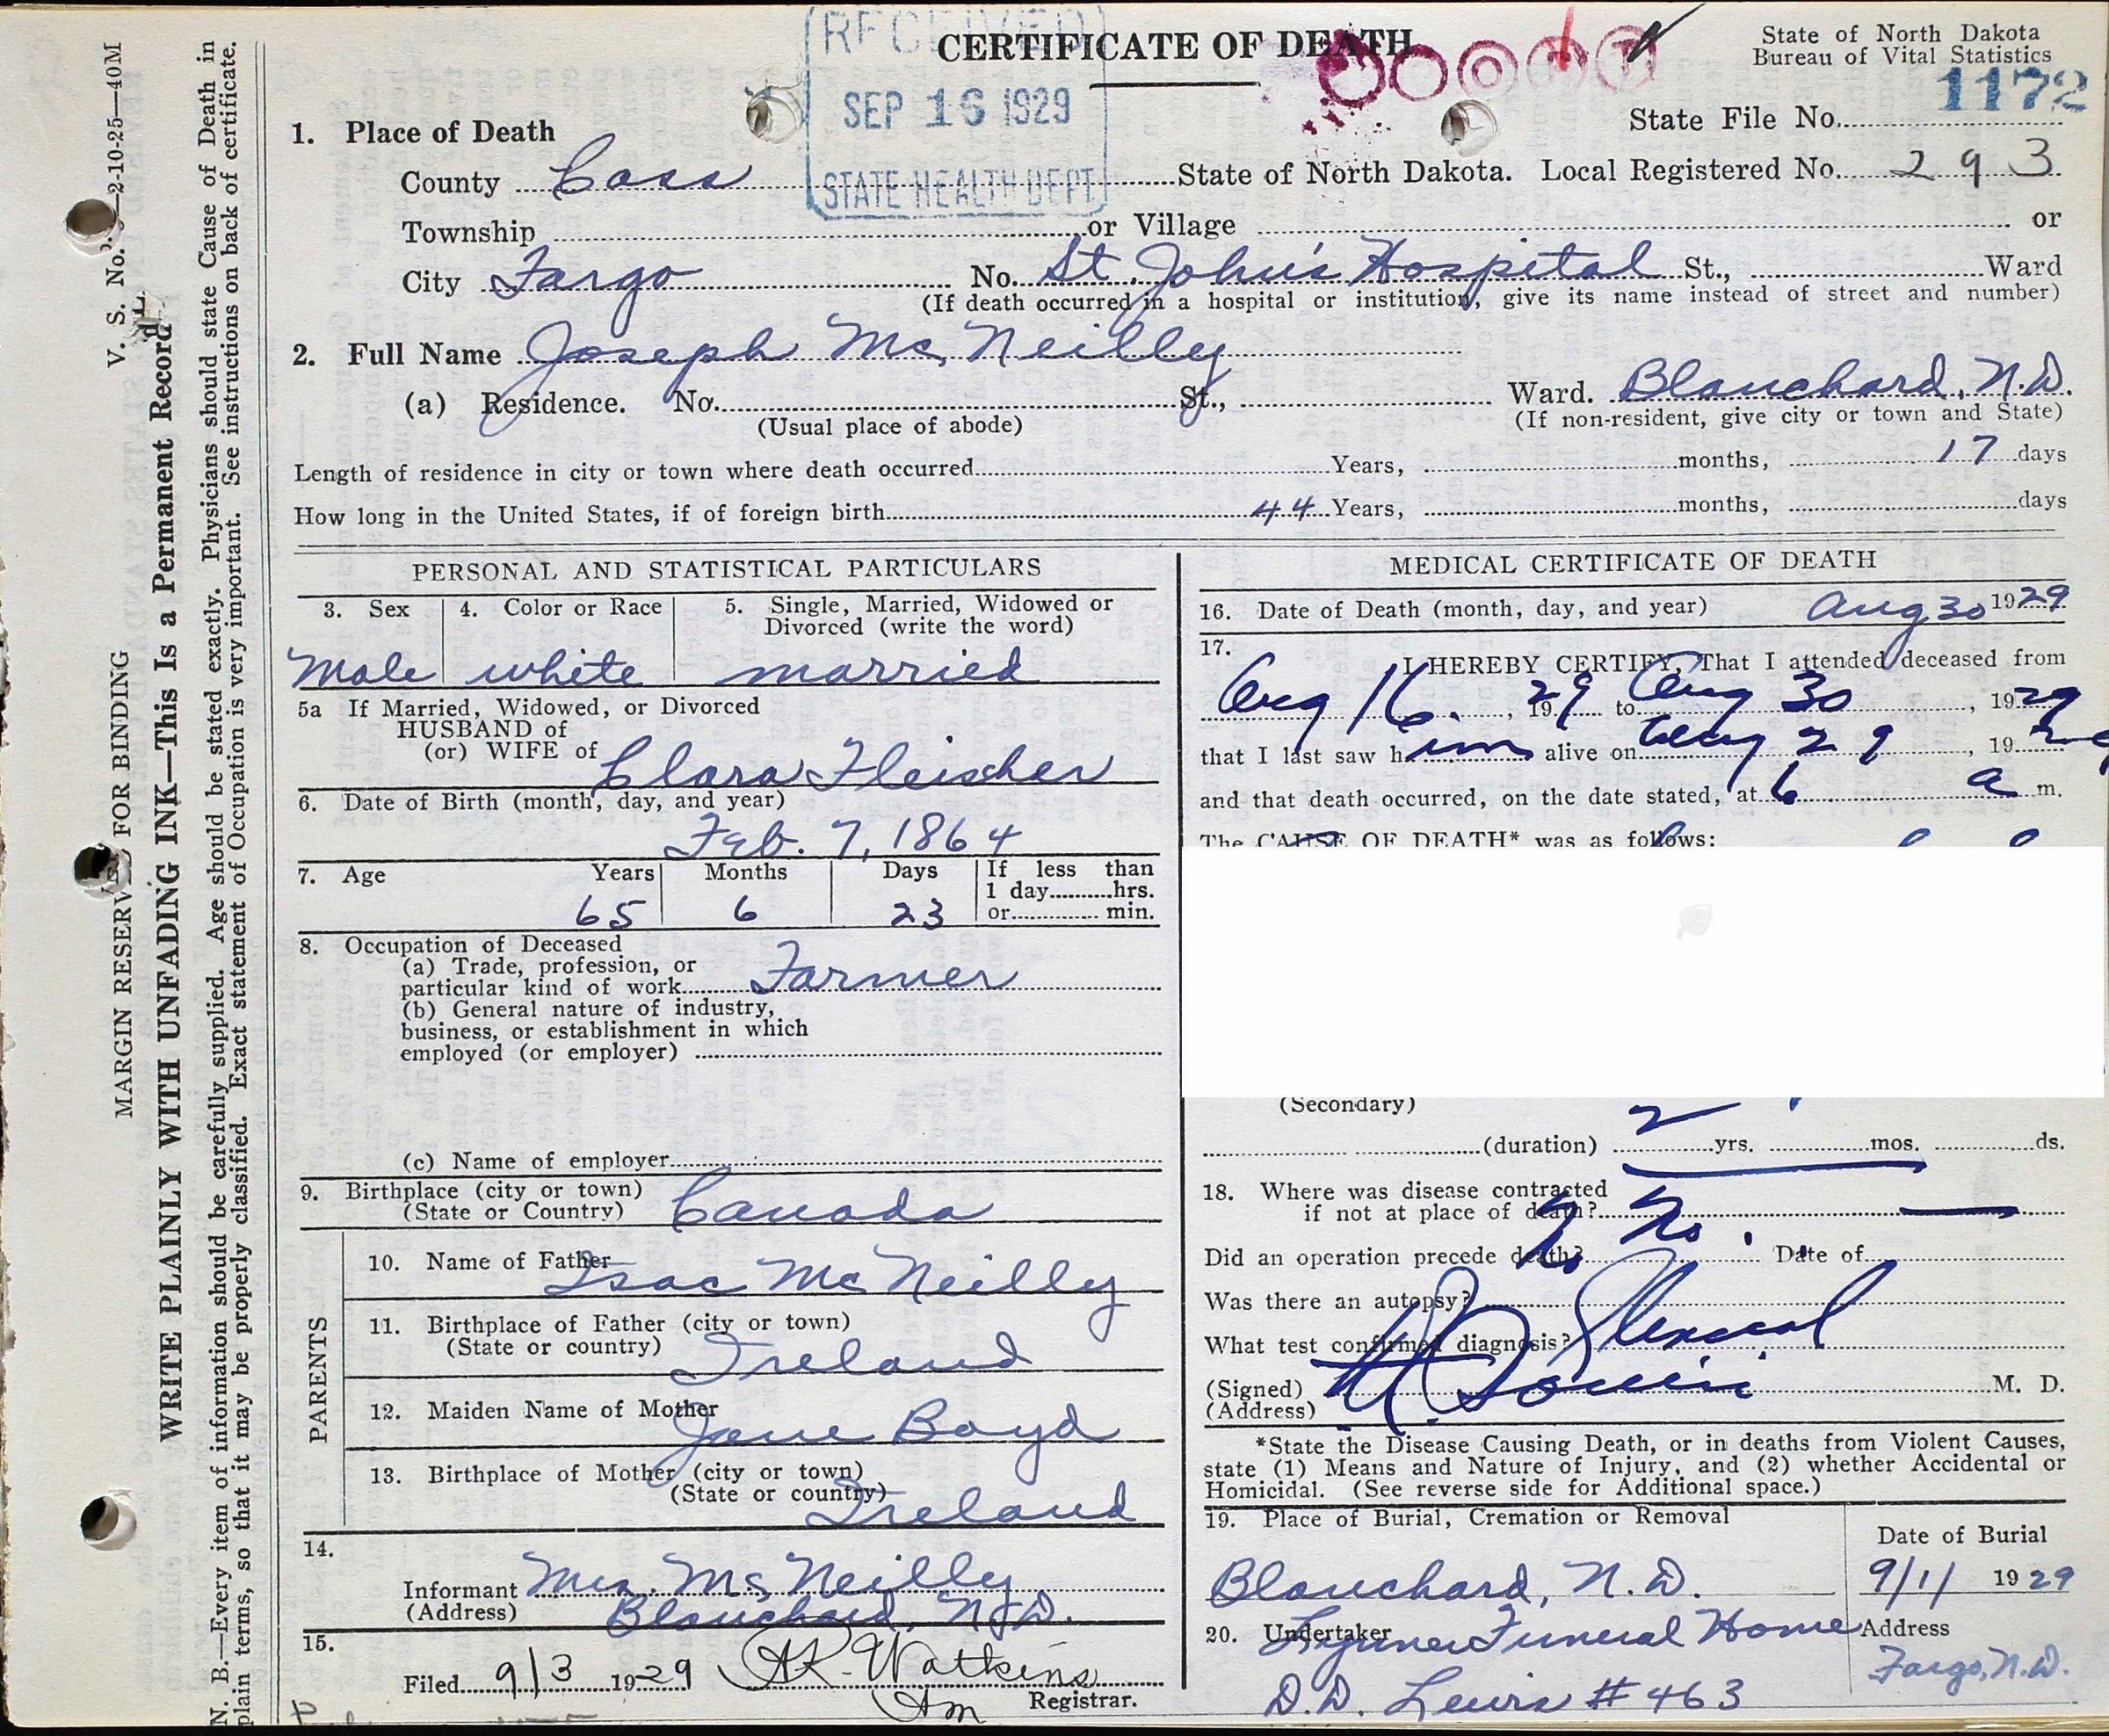 CERTIFICATE OF DEATH
State of North Dakota
Bureau of Vital Statistics
RECEIVED
SEP 16 1929
STATE HEALTH DEPT
1172
State File No.
1. Place of Death
County Cass State of North Dakota. Local Registered No. 293
Township or Village or
City Fargo No. St. John's Hospital St., Ward
(If death occurred in a hospital or institution, give its name instead of street and number)
2. Full Name Joseph McNeilly
(a) Residence. No. St., Ward. Blanchard, N.D.
(Usual place of abode) (If non-resident, give city or town and State)
Length of residence in city or town where death occurred Years, months, 17 days
How long in the United States, if of foreign birth 44 Years, months, days
PERSONAL AND STATISTICAL PARTICULARS
3. Sex 4. Color or Race 5. Single, Married, Widowed or
Divorced (write the word)
Male white married
5a If Married, Widowed, or Divorced
HUSBAND of
(or) WIFE of Clara Fleischer
6. Date of Birth (month, day, and year)
Feb. 7, 1864
7. Age Years Months Days If less than
1 day hrs.
65 6 23 or min.
8. Occupation of Deceased
(a) Trade, profession, or
particular kind of work Farmer
(b) General nature of industry,
business, or establishment in which
employed (or employer)
(c) Name of employer
9. Birthplace (city or town)
(State or Country) Canada
PARENTS
10. Name of Father Isac McNeilly
11. Birthplace of Father (city or town)
(State or country) Ireland
12. Maiden Name of Mother Jane Boyd
13. Birthplace of Mother (city or town)
(State or country) Ireland
14.
Informant Mrs. McNeilly
(Address) Blanchard, N.D.
15.
Filed 9/3 1929 AK Watkins
Registrar.
MEDICAL CERTIFICATE OF DEATH
16. Date of Death (month, day, and year) Aug 30 1929
17.
I HEREBY CERTIFY, That I attended deceased from
Aug 16, 1929 to Aug 30, 1929
that I last saw him alive on Aug 29, 1929
and that death occurred, on the date stated, at 6 a m.
The CAUSE OF DEATH* was as follows:
(Secondary)
(duration) 2 yrs. mos. ds.
18. Where was disease contracted
if not at place of death?
Did an operation precede death? No. Date of
Was there an autopsy?
What test confirmed diagnosis?
(Signed) M. D.
(Address)
*State the Disease Causing Death, or in deaths from Violent Causes,
state (1) Means and Nature of Injury, and (2) whether Accidental or
Homicidal. (See reverse side for Additional space.)
19. Place of Burial, Cremation or Removal Date of Burial
Blanchard, N.D. 9/1/ 1929
20. Undertaker Funeral Home Address
Fargo, N.D.
D.D. Lewis #463
V. S. No. 2-10-25—40M
MARGIN RESERVED FOR BINDING
WRITE PLAINLY WITH UNFADING INK—This Is a Permanent Record
N. B.—Every item of information should be carefully supplied. Age should be stated exactly. Physicians should state Cause of Death in
plain terms, so that it may be properly classified. Exact statement of Occupation is very important. See instructions on back of certificate.